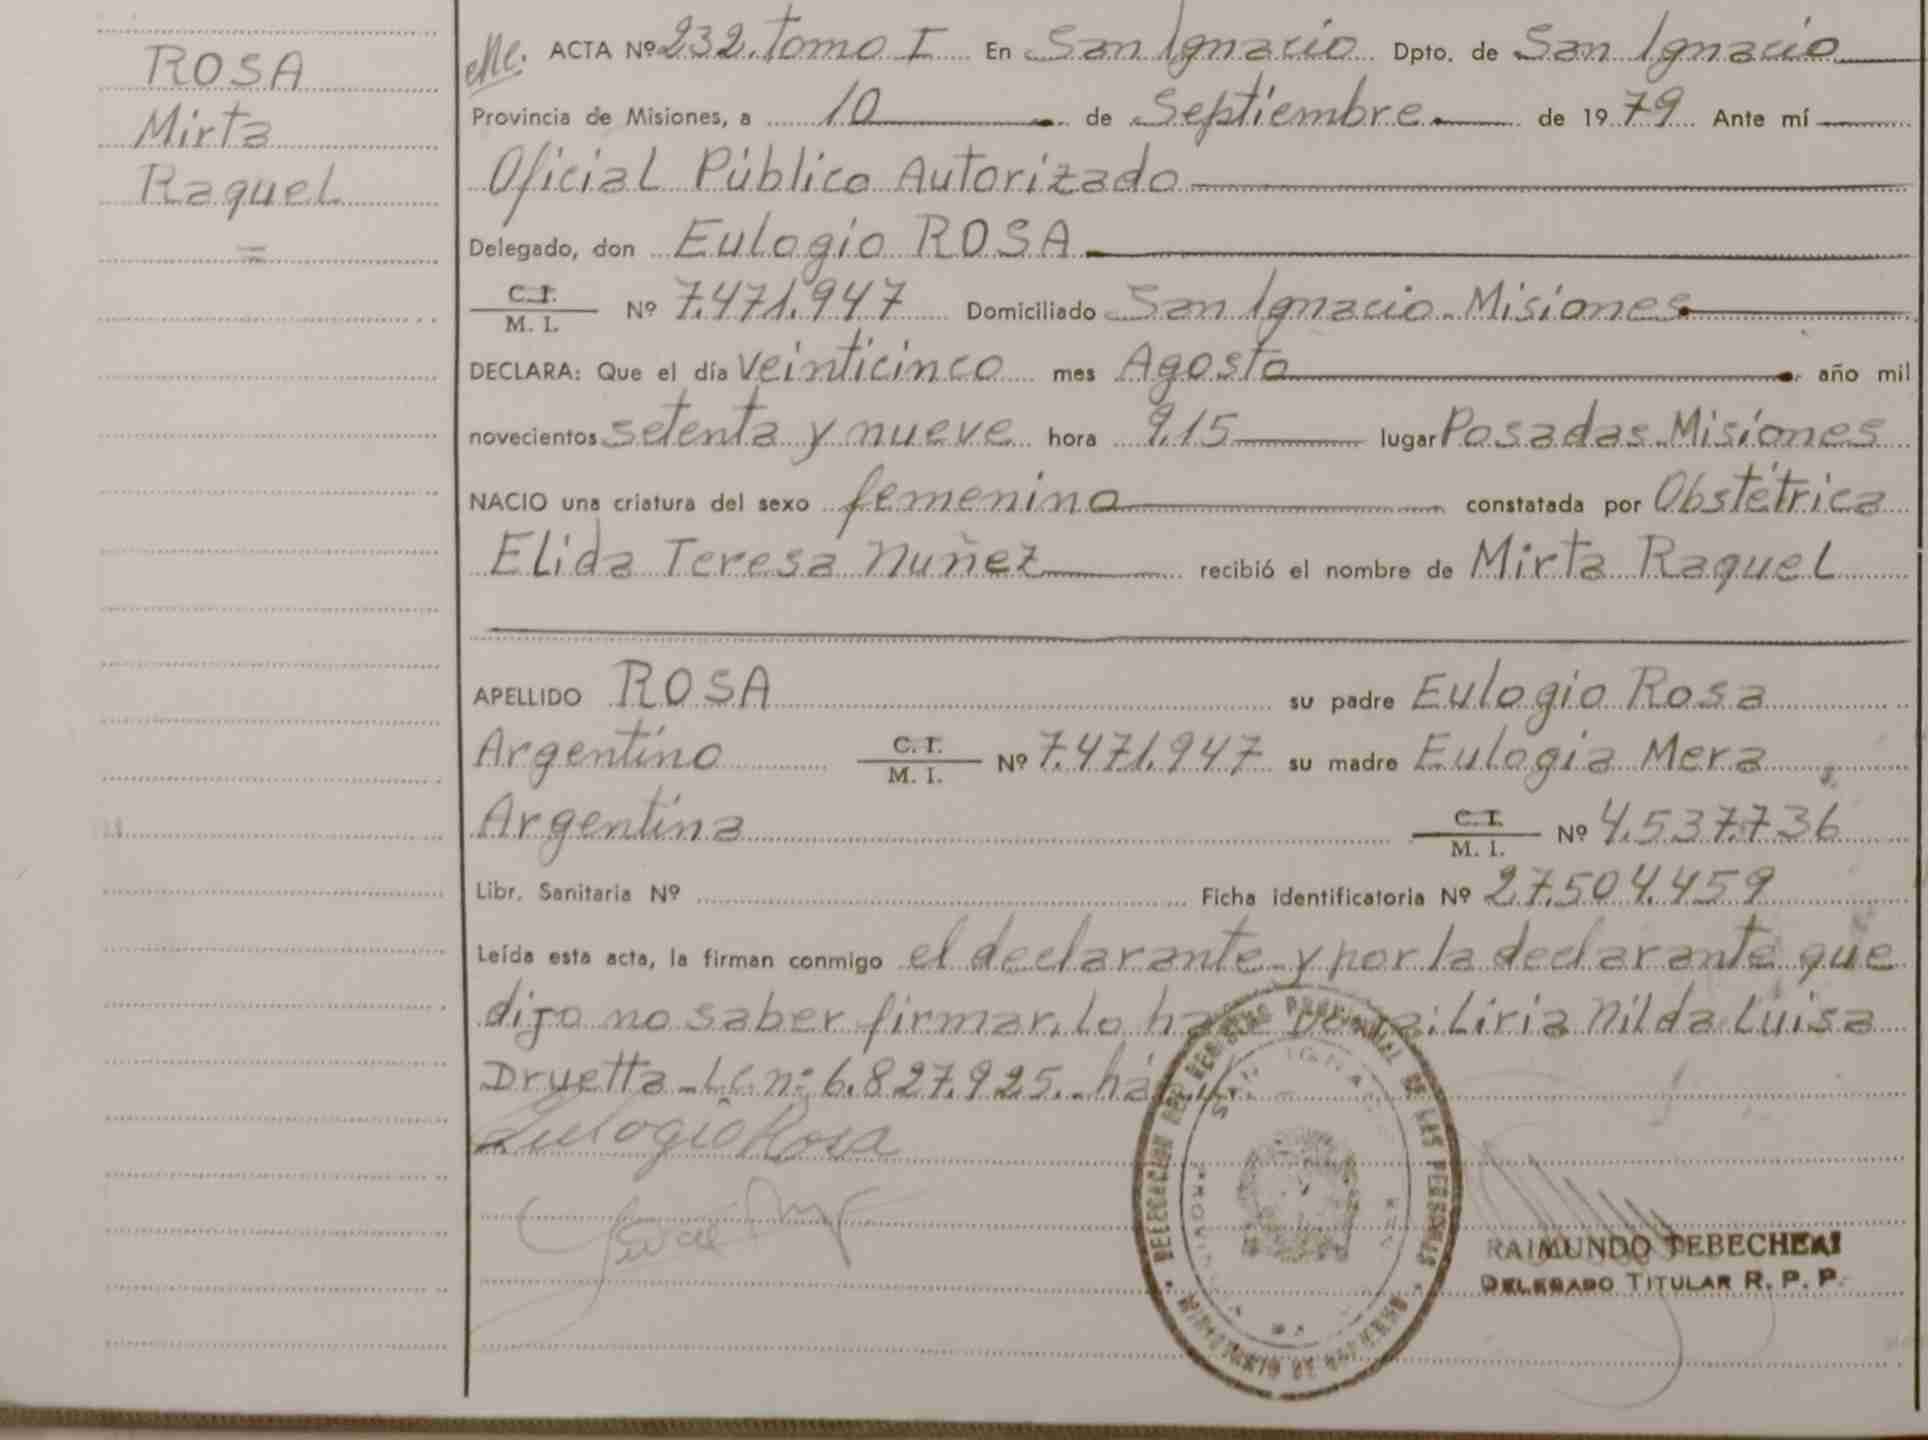 ROSA
Mirta
Raquel
ACTA Nº 232. Tomo I En San Ignacio Dpto. de San Ignacio
Provincia de Misiones, a 10 de Septiembre de 1979 Ante mí
Oficial Público Autorizado
Delegado, don Eulogio ROSA
C.I.
M. I. Nº 7.471.947 Domiciliado San Ignacio. Misiones
DECLARA: Que el día veinticinco mes Agosto año mil
novecientos setenta y nueve hora 9.15 lugar Posadas. Misiones
NACIO una criatura del sexo femenino constatada por Obstétrica
Elida Teresa Nuñez recibió el nombre de Mirta Raquel
APELLIDO ROSA su padre Eulogio Rosa
Argentino C.I.
M. I. Nº 7.471.947 su madre Eulogia Mera
Argentina C.I.
M. I. Nº 4.537.736
Libr. Sanitaria Nº Ficha identificatoria Nº 27.504.459
Leída esta acta, la firman conmigo el declarante y por la declarante que
dijo no saber firmar, lo Liria Nilda Luisa
Druetta - L.C. nº 6.827.925.
Eulogio Rosa
DELEGACION DEL REGISTRO PROVINCIAL DE LAS PERSONAS
SAN IGNACIO
RAIMUNDO TEBECHERI
DELEGADO TITULAR R. P. P.